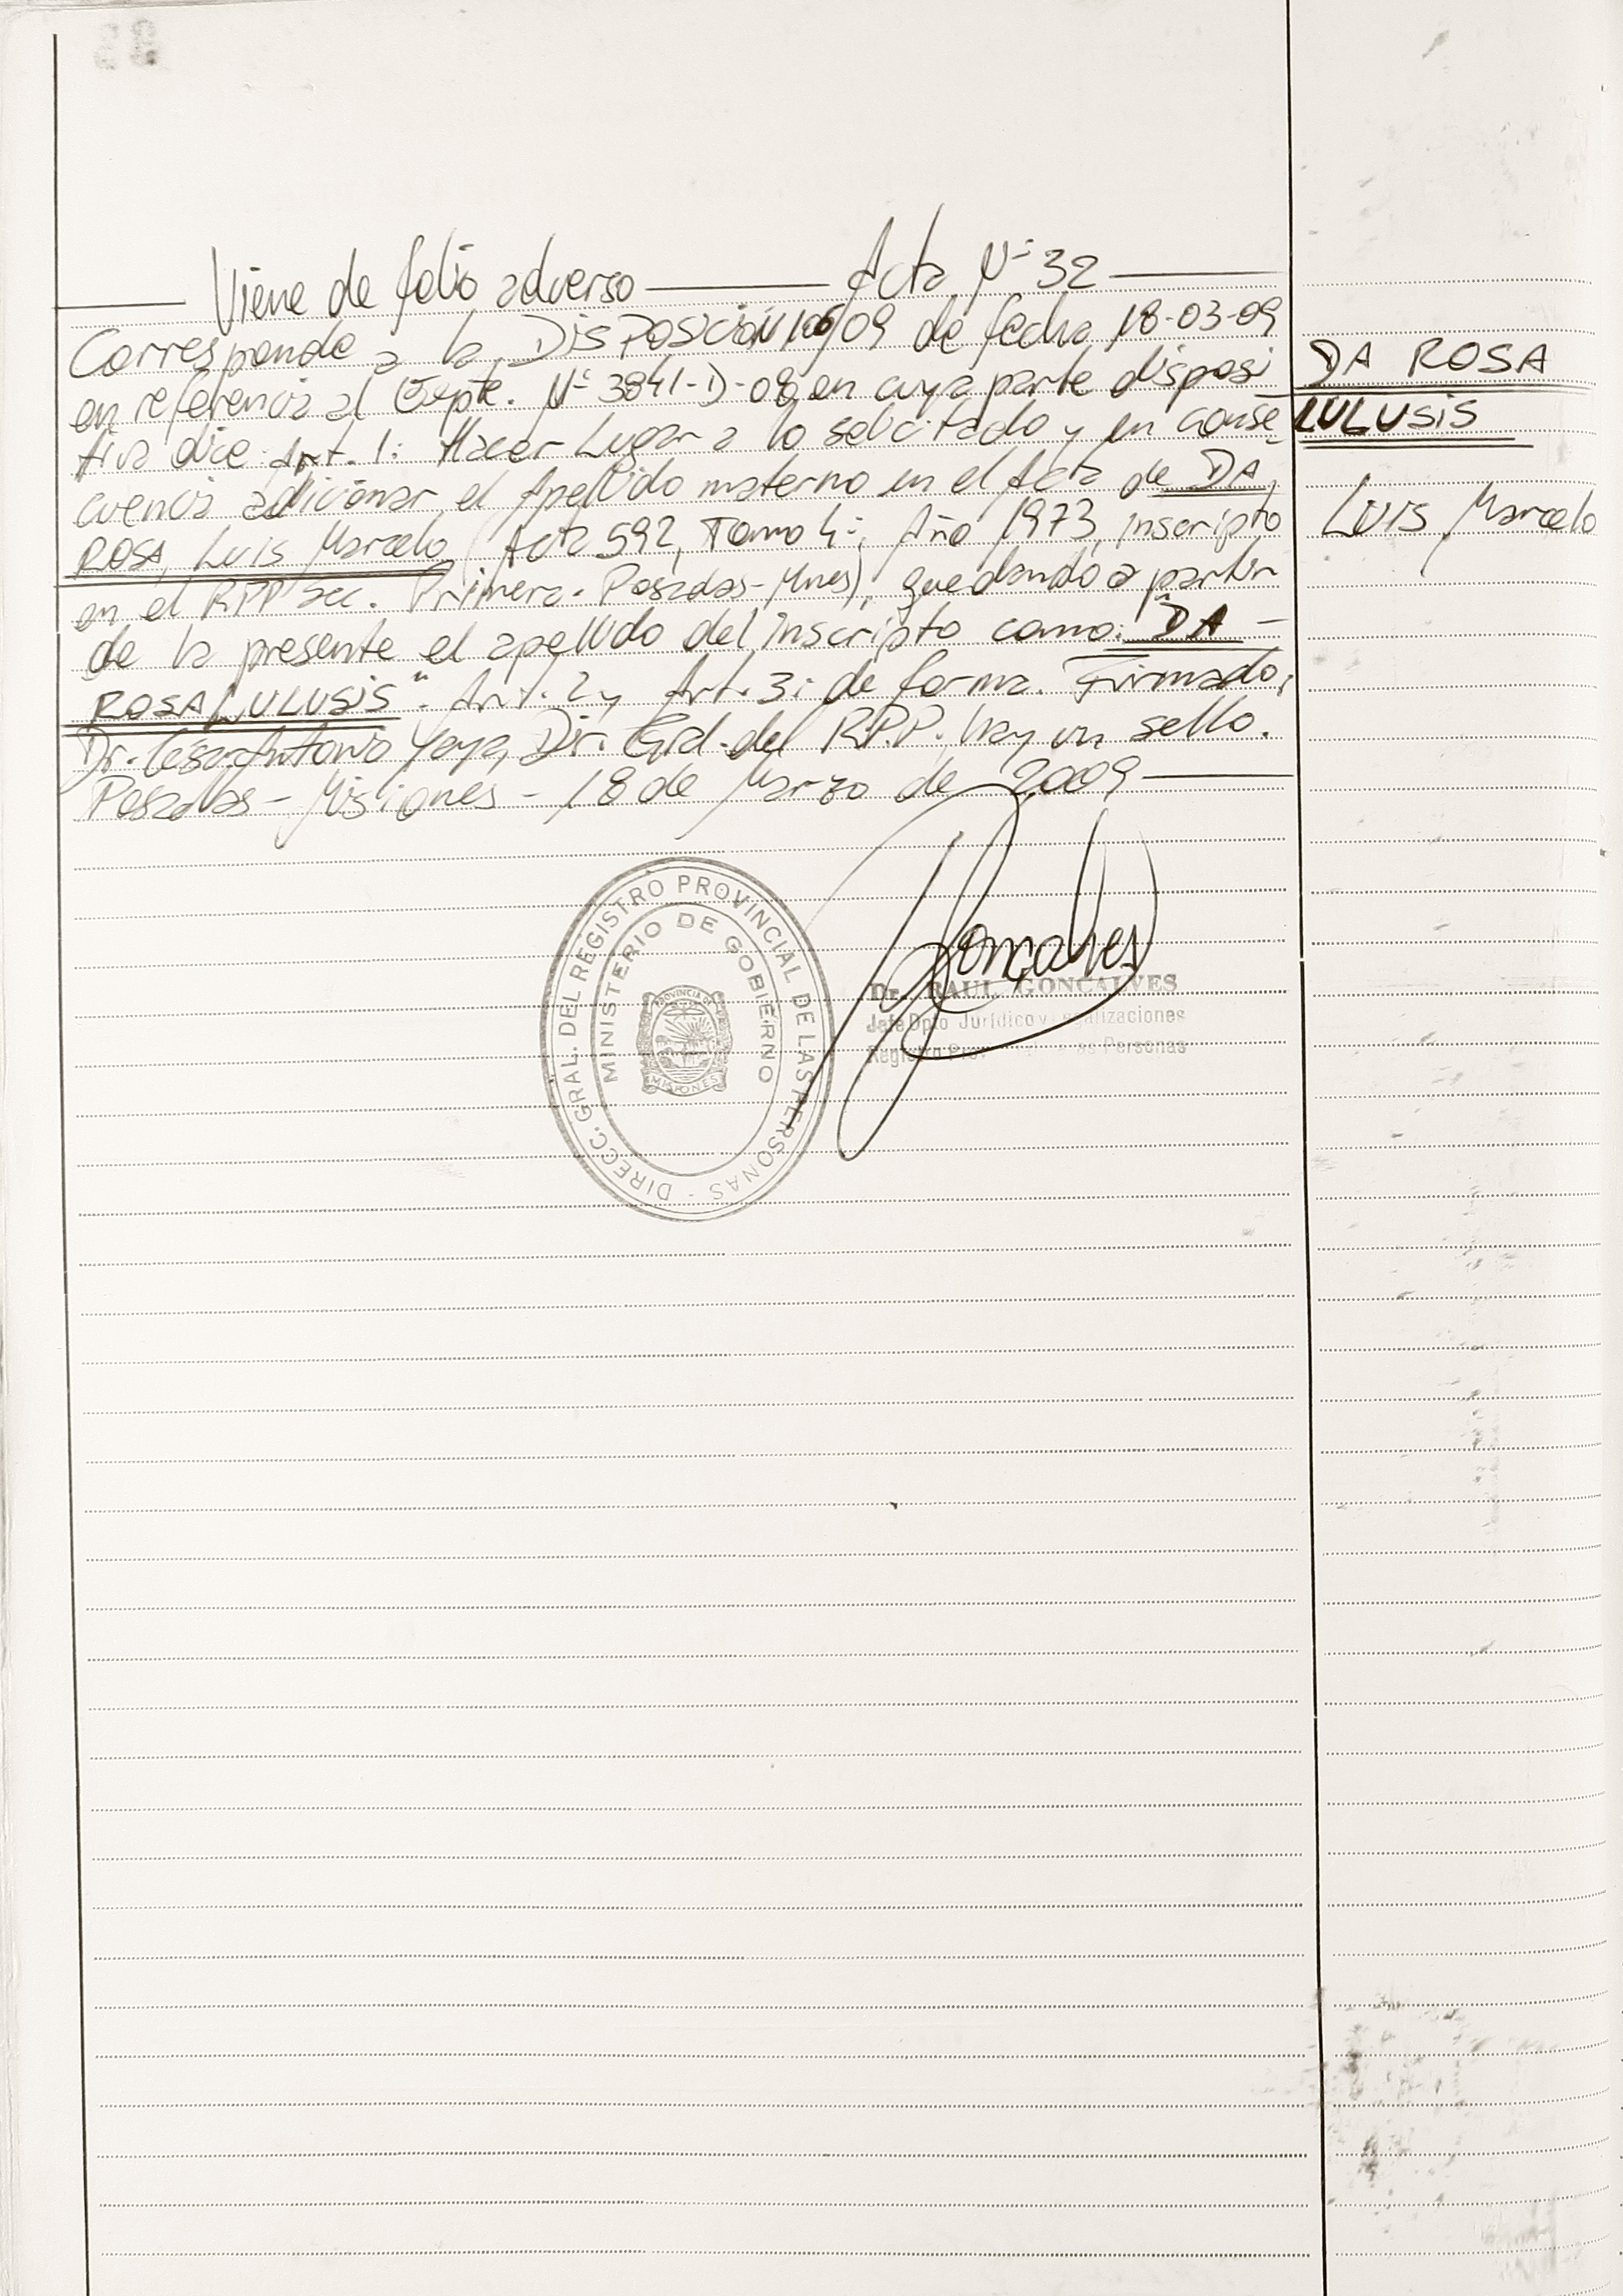 Viene de folio adverso — Acta N° 32 —
Corresponde a la DISPOSICIÓN 106/09 de fecha 18-03-09
en referencia al Expte. N° 3841-D-08, en cuya parte disposi
tiva dice: Art. 1: Hacer Lugar a lo solicitado y en conse-
cuencia adicionar el Apellido materno en el Acta de DA
ROSA, Luis Marcelo (Acta 592, Tomo 4°, Año 1973, inscripto
en el RPP sec. Primera - Posadas - Mnes), quedando a partir
de la presente el apellido del inscripto como: "DA -
ROSA LULUSIS". Art. 2 y Art. 3: de forma. Firmado,
Dr. Cesar Antonio Yaya, Dir. Gral. del R.P.P. Hay un sello.
Posadas - Misiones - 18 de Marzo de 2009 —
DA ROSA
LULUSIS
Luis Marcelo
DIRECC. GRAL. DEL REGISTRO PROVINCIAL DE LAS PERSONAS -
MINISTERIO DE GOBIERNO
PROVINCIA DE
MISIONES
Goncalves
Dr. RAUL GONCALVES
Jefe Dpto Jurídico y
Registro as Personas